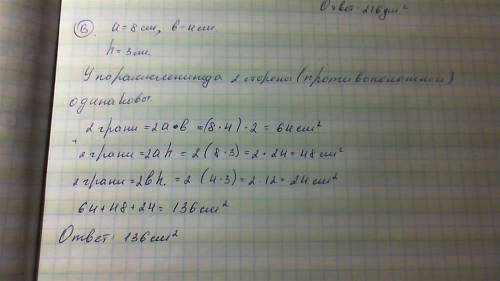 Ответ: 216 дм²
В. a = 8 см, в = 4 см.
h = 3 см.
У параллелепипеда 2 стороны (противоположной)
одинаковы.
2 грани = 2a • в = (8 • 4) • 2 = 64 см²
2 грани = 2ah = 2 (8 • 3) = 2 • 24 = 48 см²
2 грани = 2вh. = 2 (4 • 3) = 2 • 12 = 24 см²
64 + 48 + 24 = 136 см²
Ответ: 136 см²